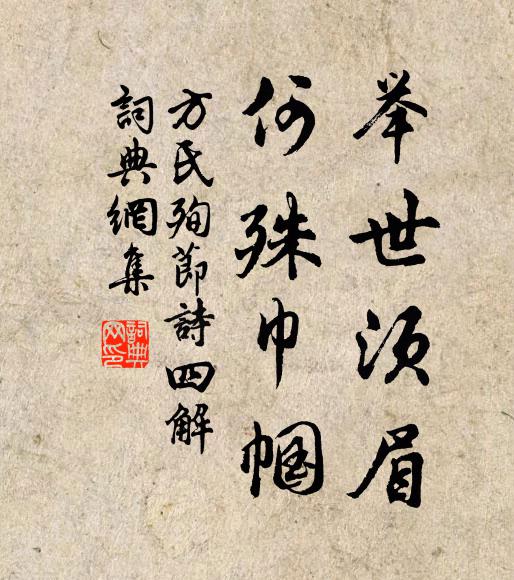 举世须眉
何殊巾帼
方氏殉節詩四解
詞典網集
詞典网印